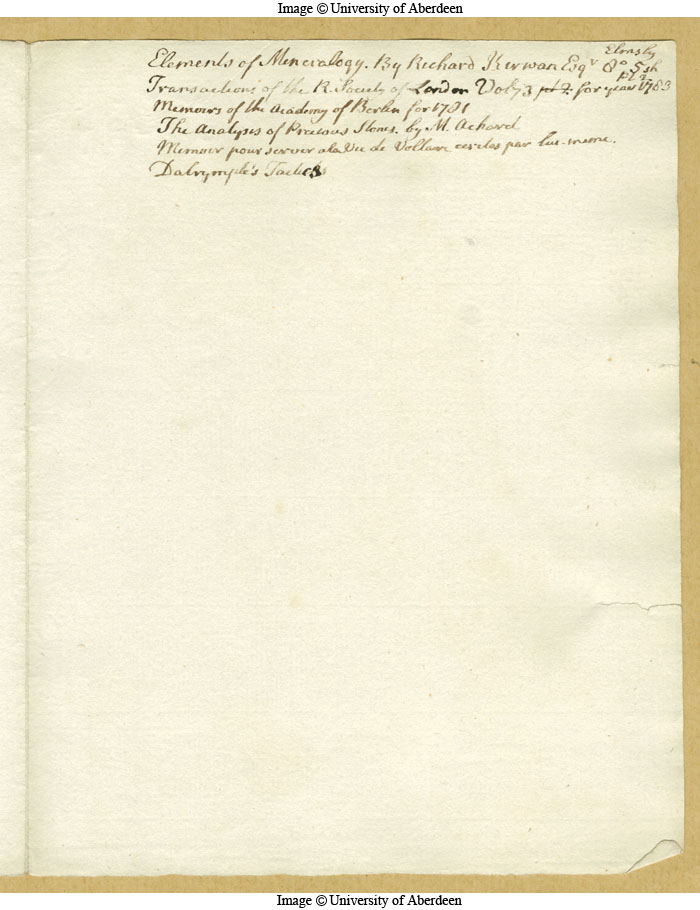 Image © University of Aberdeen
Elmsly
Elements of Mineralogy. By Richard Kirwan Esqr 8o 5sh
pt 2
Transactions of the R. Society of London Vol 73 pt 2. for year 1783
Memoirs of the Academy of Berlin for 1781
The Analyses of Precious Stones. by M. Achard
Memoir pour servir a la Vie de Voltaire ecrites par lui-meme.
Dalrymple's Tacticks
Image © University of Aberdeen